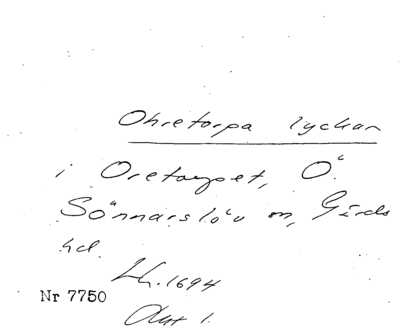 Ohretorpa lyckan
i Oretorpet, Ö.
Sönnarslöv sn, Gärds
hd.
Lh. 1694
Nr 7750
Akt 1.